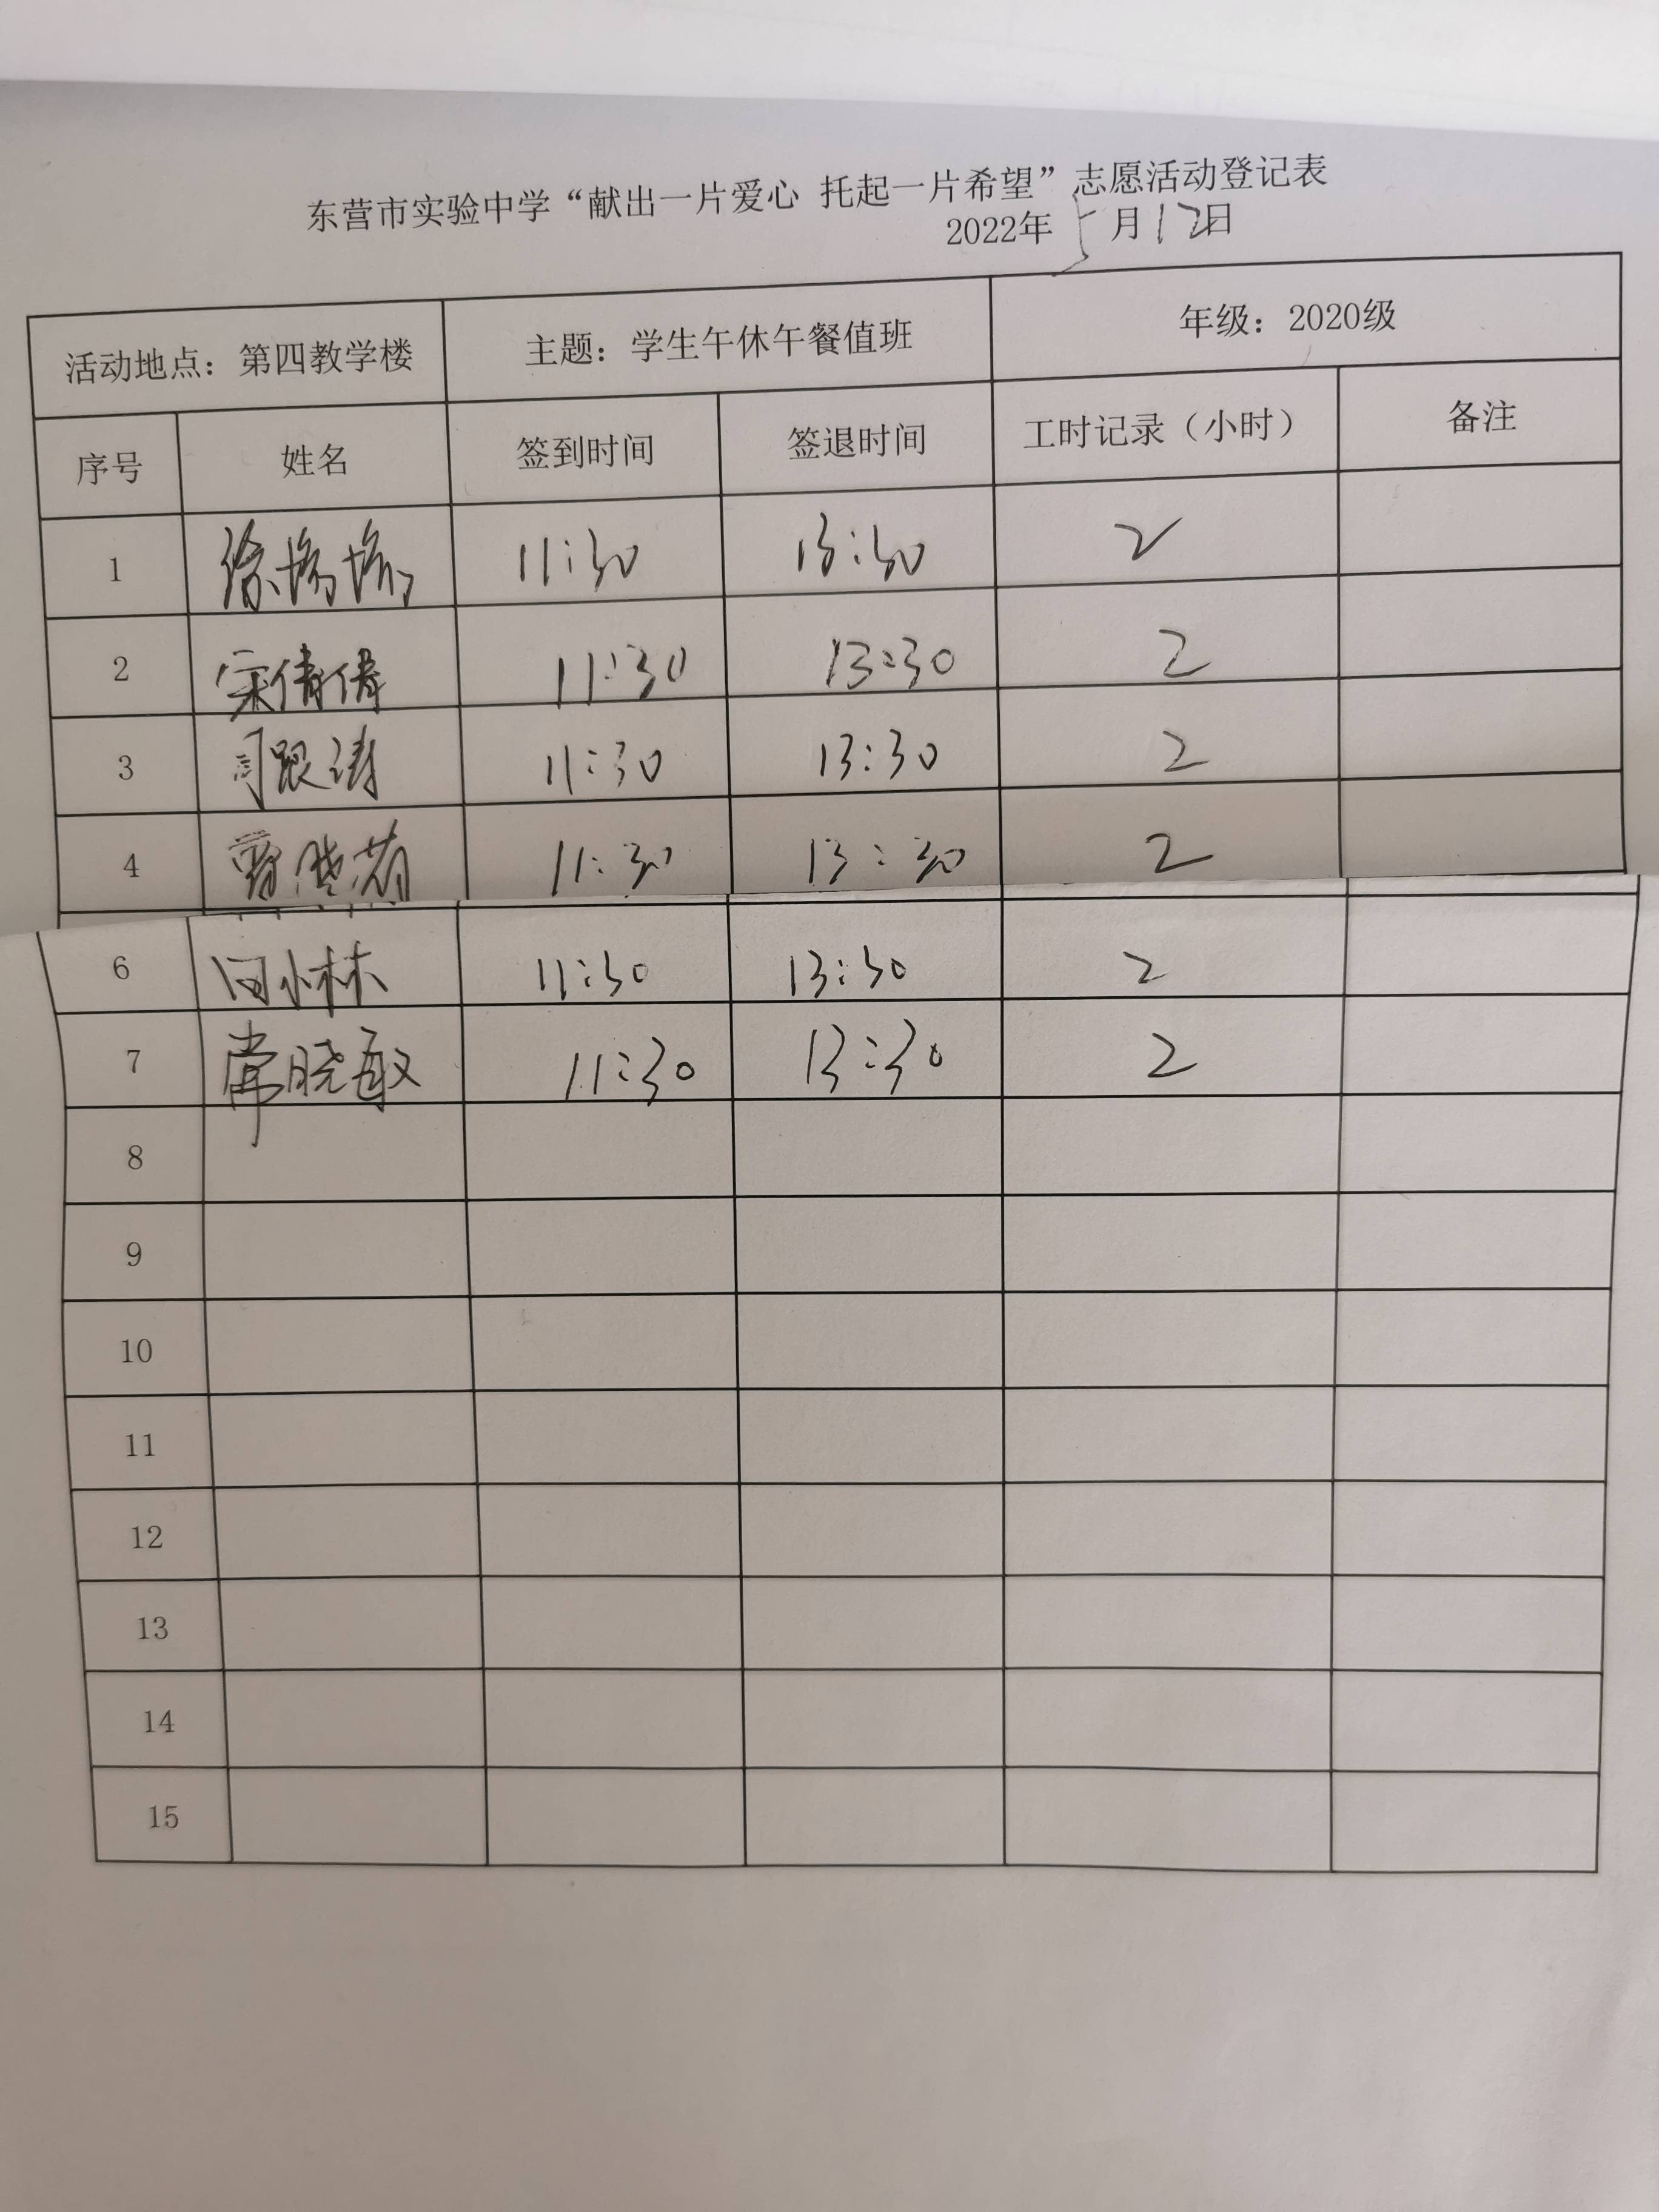 东营市实验中学“献出一片爱心 托起一片希望”志愿活动登记表
2022年5月12日
活动地点：第四教学楼 主题：学生午休午餐值班 年级：2020级
序号 姓名 签到时间 签退时间 工时记录（小时） 备注
1 徐 11:30 13:30 2
2 宋倩倩 11:30 13:30 2
3 司跟涛 11:30 13:30 2
4 11:30 13:30 2
6 闫小林 11:30 13:30 2
7 常晓敏 11:30 13:30 2
8
9
10
11
12
13
14
15